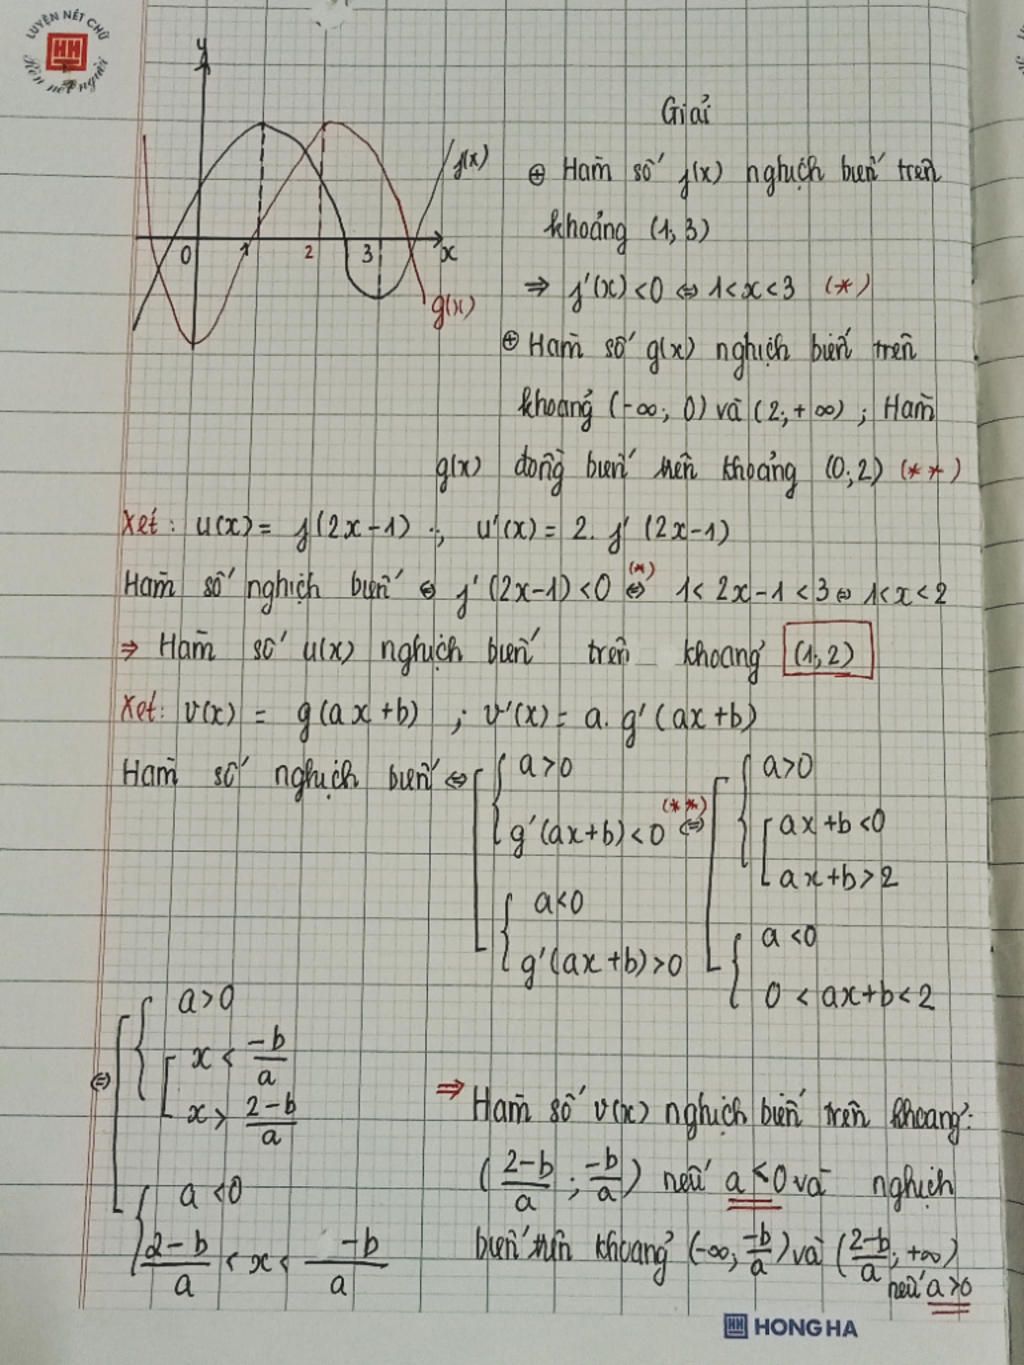 LUYỆN NÉT CHỮ
HH
Rèn nết người
y
f(x)
0
1
2
3
x
g(x)
Giải
⊕ Hàm số f(x) nghịch biến trên
khoảng (1; 3)
⇒ f'(x) < 0 ⇔ 1 < x < 3 (*)
⊕ Hàm số g(x) nghịch biến trên
khoảng (-∞; 0) và (2; +∞) ; Hàm
g(x) đồng biến trên khoảng (0; 2) (**)
Xét: u(x) = f(2x-1) ; u'(x) = 2. f'(2x-1)
Hàm số nghịch biến ⇔ f'(2x-1) < 0 (*)⇔ 1 < 2x-1 < 3 ⇔ 1 < x < 2
⇒ Hàm số u(x) nghịch biến trên khoảng (1; 2)
Xét: v(x) = g(ax+b) ; v'(x) = a. g'(ax+b)
Hàm số nghịch biến ⇔ [ { a>0 g'(ax+b) < 0 { a<0 g'(ax+b) > 0 (**)⇔ [ { a>0 [ ax+b < 0 ax+b > 2 { a<0 0 < ax+b < 2
⇔ [ { a>0 [ x < -b/a x > 2-b/a { a<0 2-b/a < x < -b/a
⇒ Hàm số v(x) nghịch biến trên khoảng:
(2-b/a ; -b/a) nếu a<0 và nghịch
biến trên khoảng (-∞; -b/a) và (2-b/a; +∞)
nếu a>0
HH HONG HA